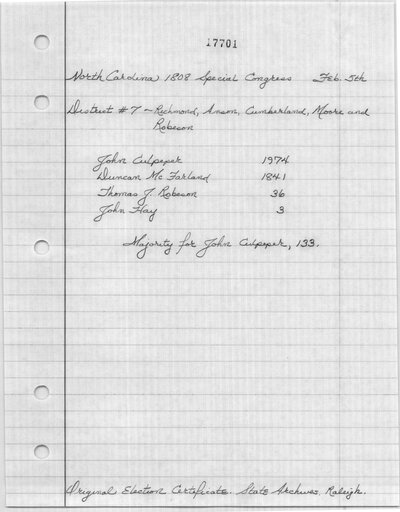 17701
North Carolina 1808 Special Congress Feb. 5th
District #7 - Richmond, Anson, Cumberland, Moore and
Robeson
John Culpeper 1974
Duncan McFarland 1841
Thomas J. Robeson 36
John Hay 3
Majority for John Culpeper, 133.
Original Election Certificate. State Archives. Raleigh.